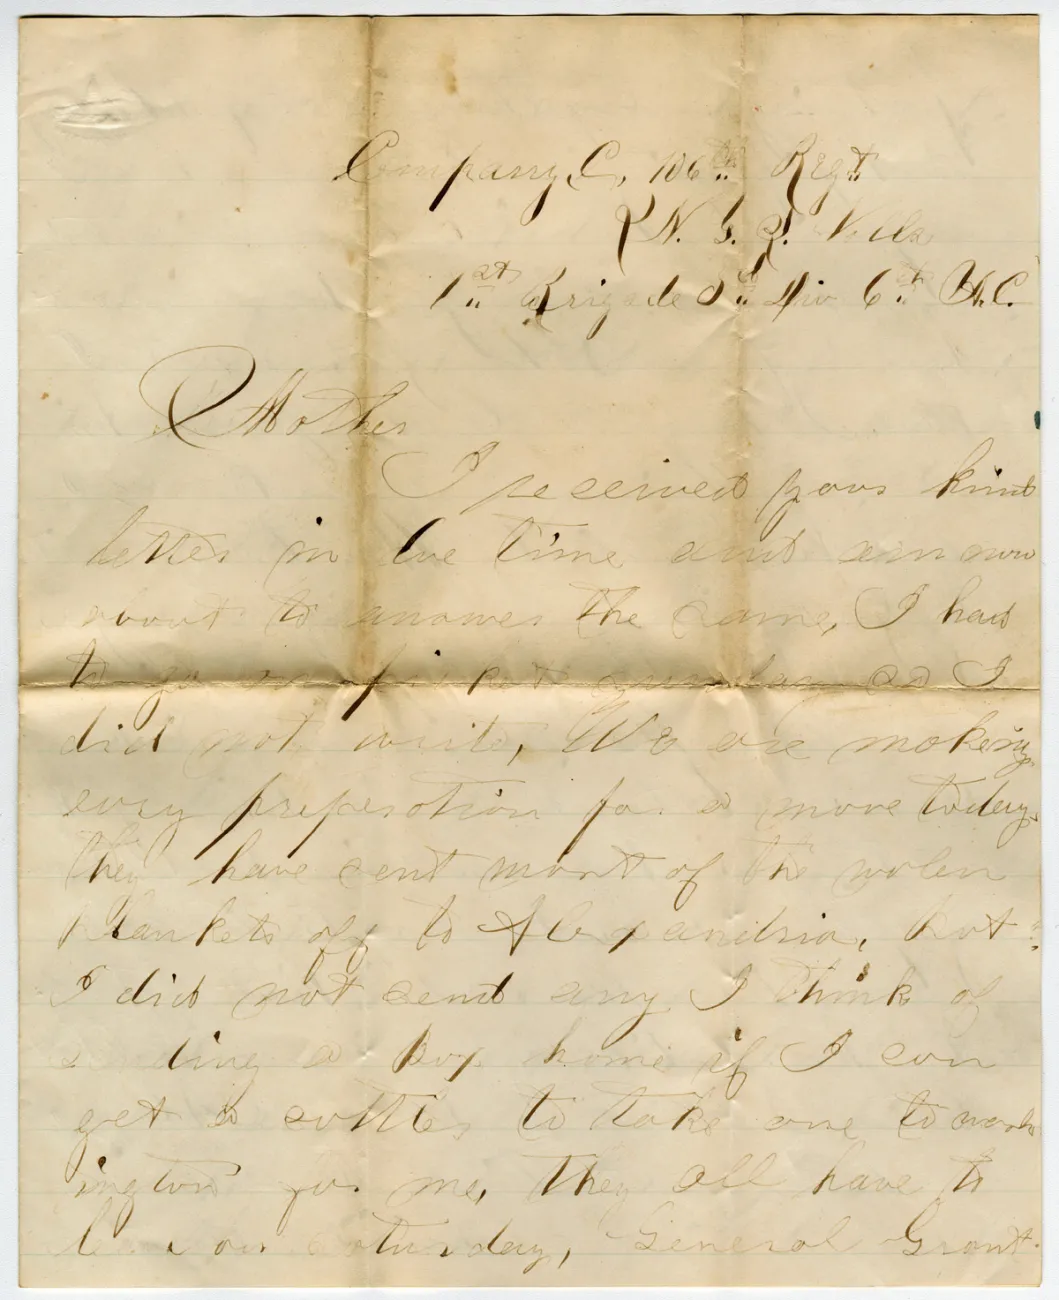 Company, C, 106th Regt
N. Y. S. Vols
1st Brigade 3d Div 6th A.C.
Mother
I received your kind
letter in due time and am now
about to answer the same, I had
to go on picket sunday so I
did not write, We are making
evry preperation for a move today.
they have sent most of the wolen
blankets off to Alexandria, but
I did not send any I think of
sending a box home if I can
get a sutler to take one to wash
ington for me, they all have to
leave on Saturday, General Grant